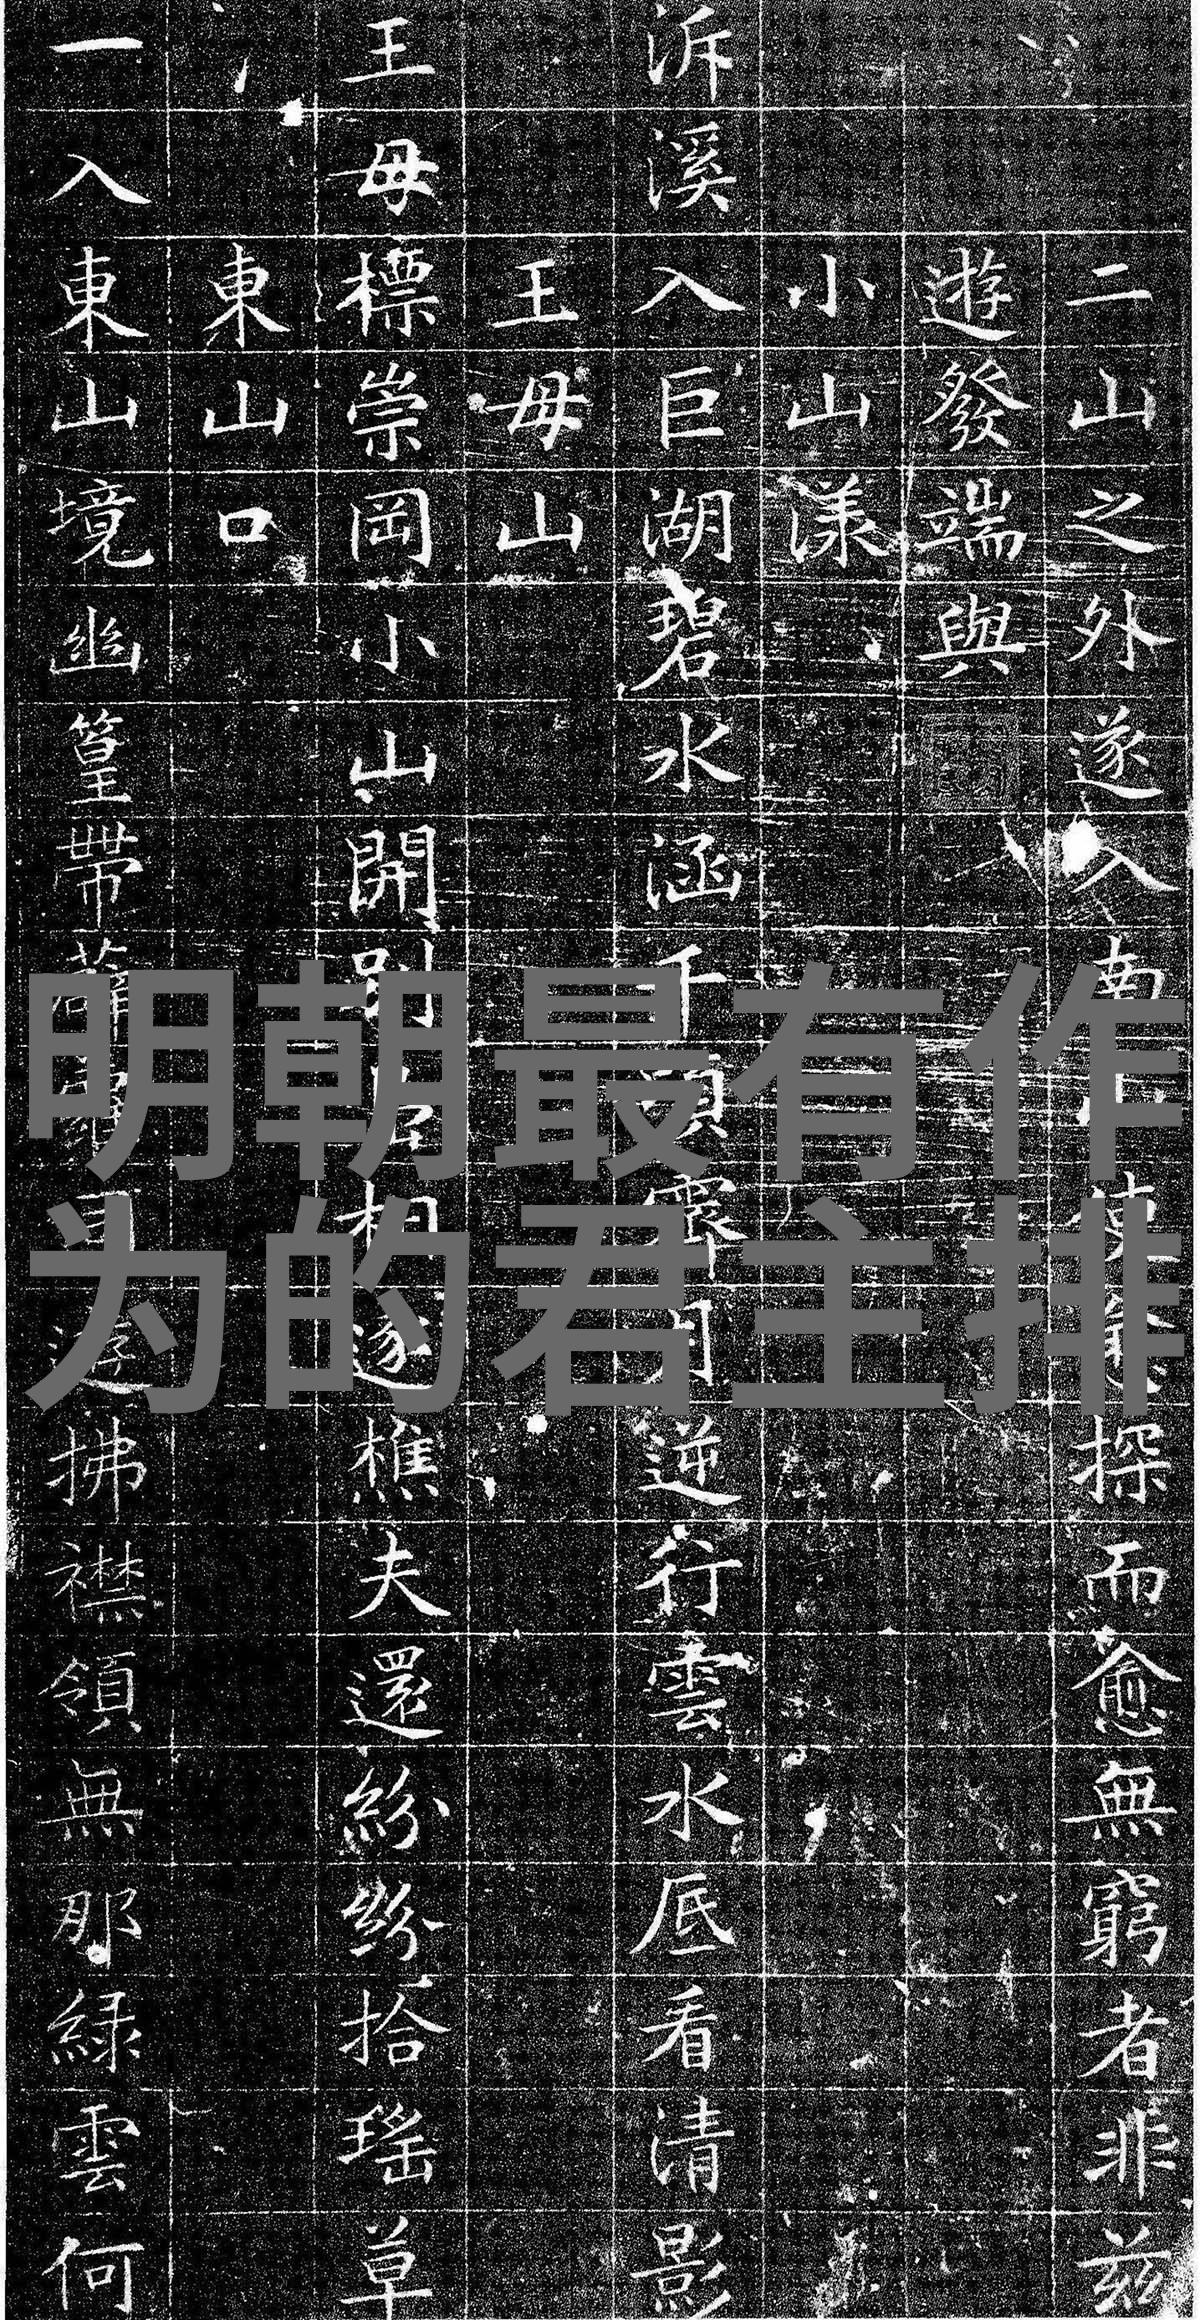 二山之外遂入南山使愈探而愈無窮者非茲
遊發端與
小山漾
泝溪入巨湖碧水涵千頃霽月逆行雲水底看清影
王母山
王母標崇岡小山開別相遂樵夫還紛紛拾瑤草
東山口
一入東山境幽篁帶蘿拂襟領無那綠雲何
明朝最有作
为的君主排